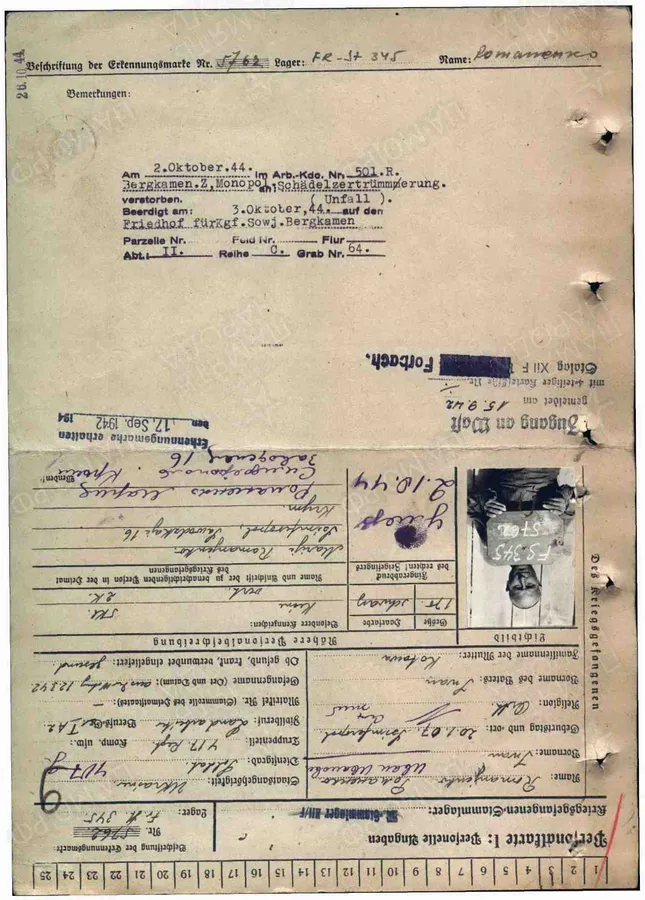 28.10.44
Beschriftung der Erkennungsmarke Nr. 5762 Lager: FR-St 345 Name: Romanenko
Bemerkungen:
Am 2.Oktober.44. im Arb.-Kdo. Nr. 501.R.
Bergkamen.Z,Monopol, an: Schädelzertrümmerung.
verstorben. ( Unfall ).
Beerdigt am: 3.Oktober,44. auf den
Friedhof fürKgf.Sowj.Bergkamen
Parzelle Nr. Feld Nr. Flur
Abt.: II. Reihe C. Grab Nr. 64.
Zugang an Wast
gemeldet am 15.9.42
mit 4-teiliger Karteikarte Nr.
Stalag XII F Forbach.
Erkennungsmarke erhalten
den 17. Sep. 1942 194
25 24 23 22 21 20 19 18 17 16 15 14 13 12 11 10 9 8 7 6 5 4 3 2 1
Personalkarte I: Personelle Angaben
Kriegsgefangenen-Stammlager: M.-Stammlager XII/F
Beschriftung der Erkennungsmarke
Nr. 5762
Lager: Fr. St. 345
Des Kriegsgefangenen
Name: Romanjenko
Романенко
Vorname: Iwan
Иван Иванов
Geburtstag und -ort: 20.1.07. Simferopol
Religion:
Vorname des Vaters: Iwan
Familienname der Mutter: Kotowa
Staatsangehörigkeit: Ukraine
Dienstgrad: Soldat
Truppenteil: 417 Komp. usw.:
Zivilberuf: Landarbeiter Berufs-Gr.: I A 2
Matrikel Nr. (Stammrolle des Heimatstaates): –
Gefangennahme (Ort und Datum): 12.5.42
Ob gesund, krank, verwundet eingeliefert: gesund
Lichtbild
FS 345
5702
Nähere Personalbeschreibung
Größe Haarfarbe Besondere Kennzeichen:
schwarz
Fingerabdruck
des rechten! Zeigefingers
Name und Anschrift der zu benachrichtigenden Person in der Heimat
des Kriegsgefangenen
Marija Romanjenko
Simferopol,
Krym.
умер
2.10.44
Романенко Мария
Симферополь Крым
16
Wenden!